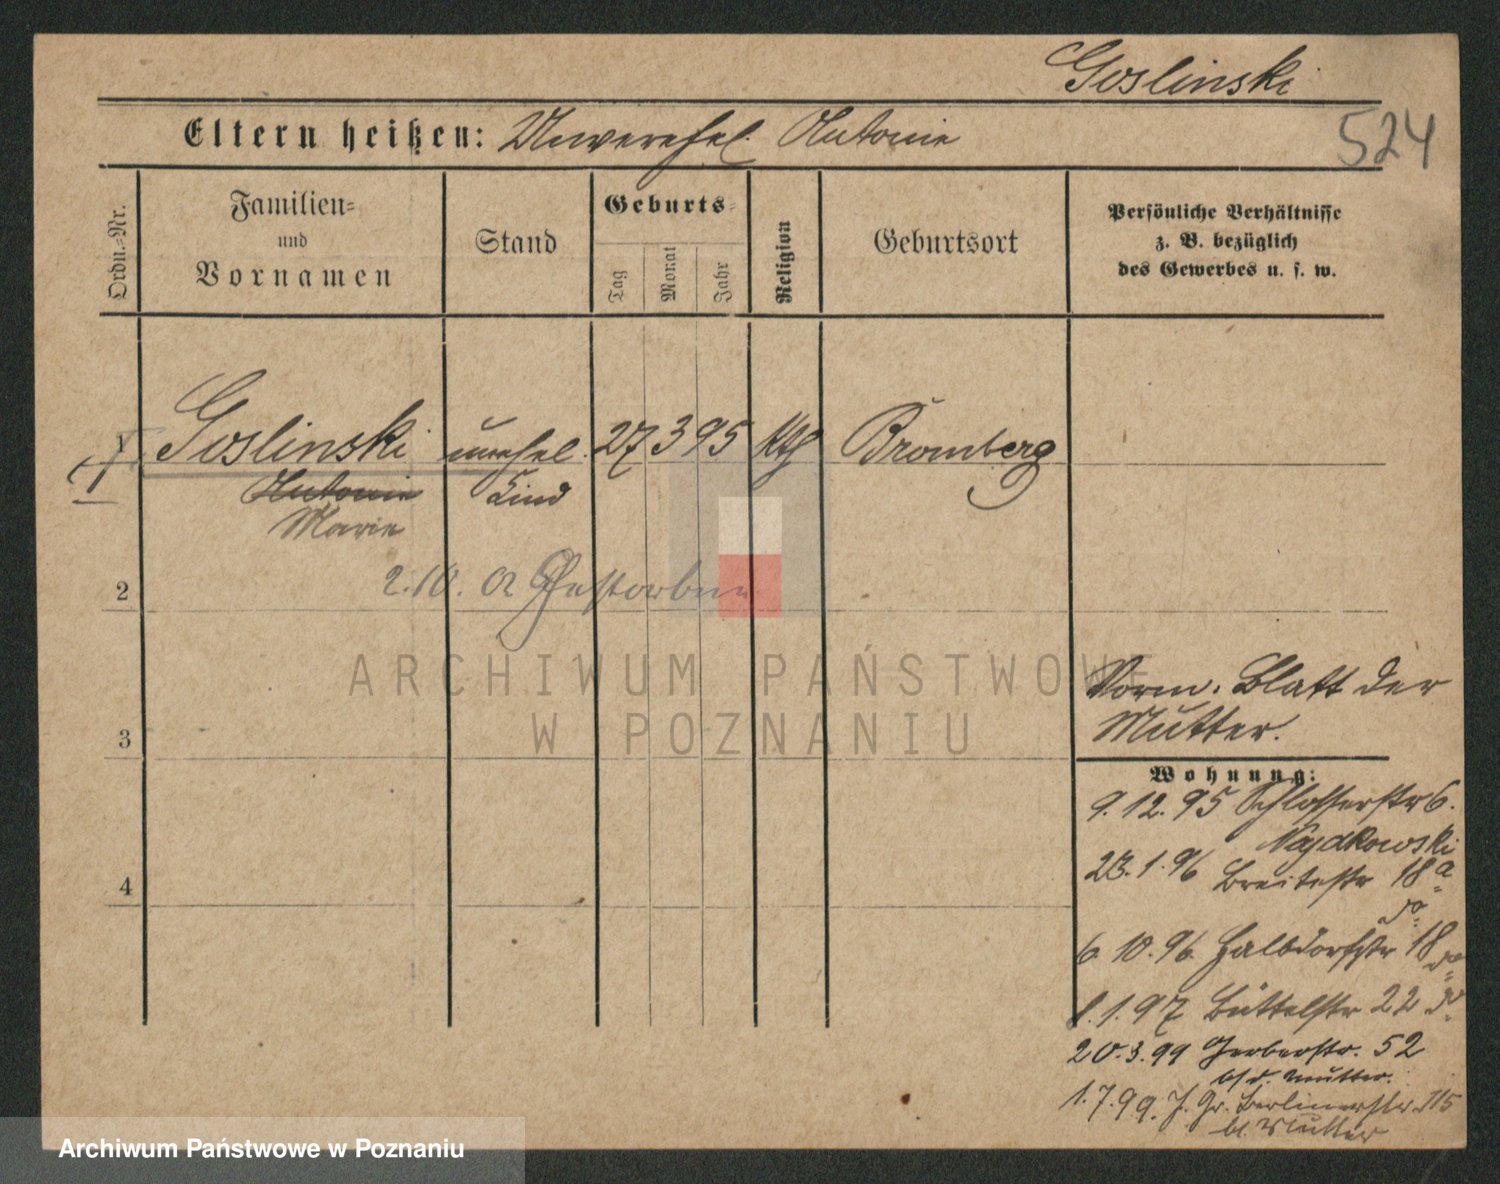 Goslinski
Eltern heißen: Unverehel. Antonie
524
Ordn.-Nr.
Familien-
und
Vornamen
Stand
Geburts-
Tag
Monat
Jahr
Religion
Geburtsort
Persönliche Verhältnisse
z. B. bezüglich
des Gewerbes u. s. w.
1 Goslinski unehel. 27 3 95 kth Bromberg
Antonie Kind
Marie
2.10. Gestorben
2
ARCHIWUM PAŃSTWOWE
W POZNANIU
3
4
Vorm. Blatt der
Mutter.
Wohnung:
9.12.95 Schlosserstr 6.
Najdkowski
23.1.96 Breitestr 18a
do
6.10.96 Halbdorfstr 18 do
8.1.97 Büttelstr 22 do
20.3.99 Gerberstr. 52
b/d. Mutter.
1.7.99. Gr. Berlinerstr 115
bl. Mutter
Archiwum Państwowe w Poznaniu